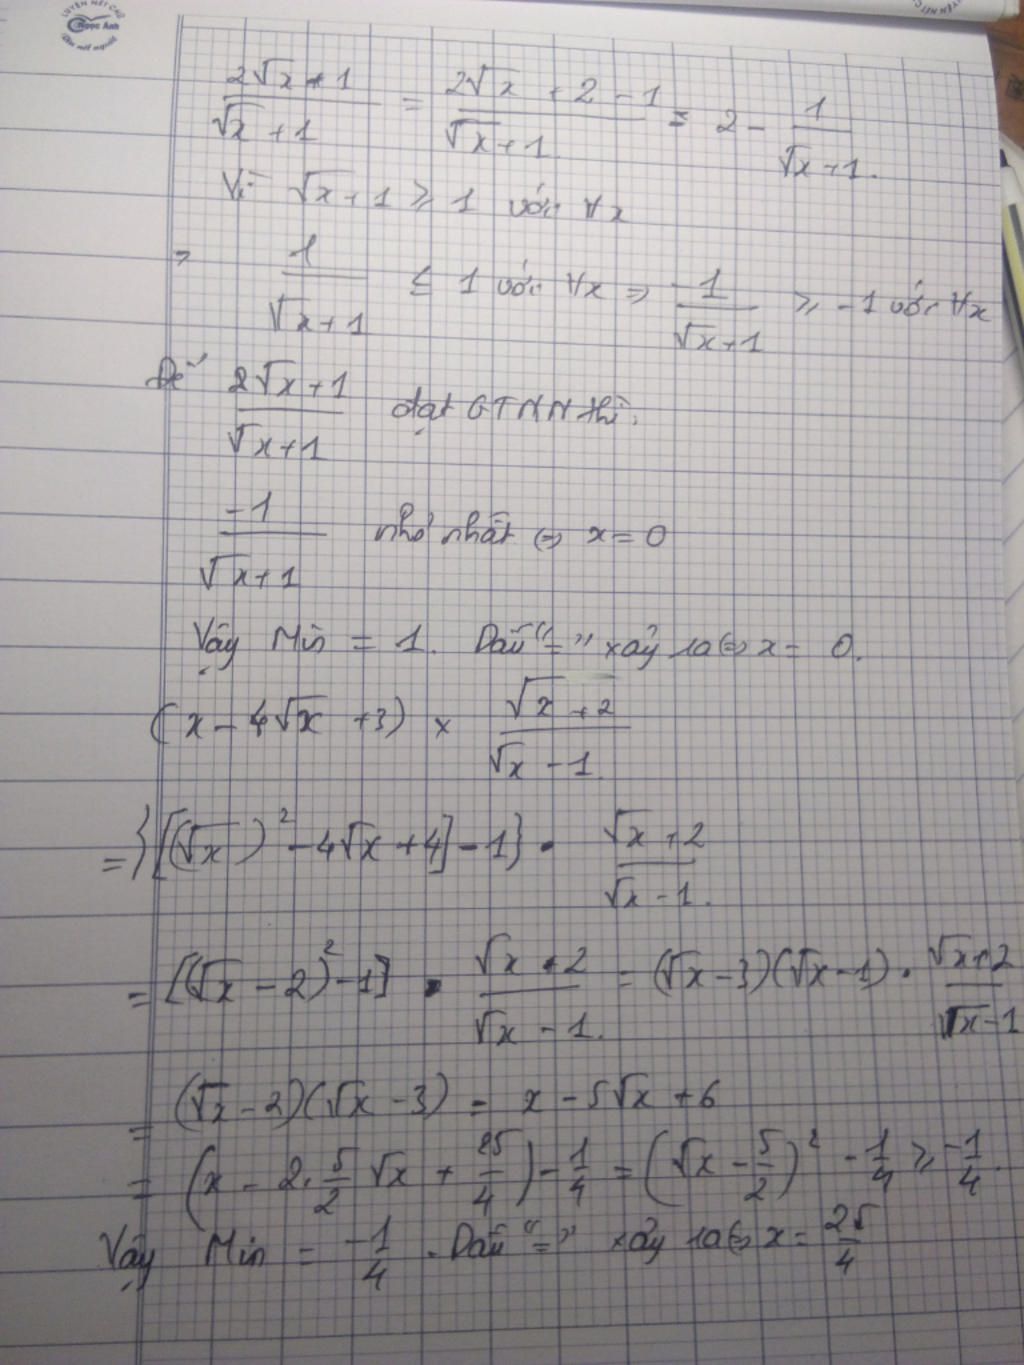 LUYỆN NÉT CHỮ
Ngọc Ánh
(2√x + 1)/(√x + 1) = (2√x + 2 - 1)/(√x + 1) = 2 - 1/(√x + 1).
Vì √x + 1 ≥ 1 với ∀x
⇒ 1/(√x + 1) ≤ 1 với ∀x ⇒ -1/(√x + 1) ≥ -1 với ∀x
Để (2√x + 1)/(√x + 1) đạt GTNN thì.
-1/(√x + 1) nhỏ nhất ⇔ x = 0
Vậy Min = 1. Dấu "=" xảy ra ⇔ x = 0.
(x - 4√x + 3) × (√x + 2)/(√x - 1).
= {[(√x)² - 4√x + 4] - 1} · (√x + 2)/(√x - 1).
= [(√x - 2)² - 1] · (√x + 2)/(√x - 1). = (√x - 3)(√x - 1) · (√x + 2)/(√x - 1)
= (√x - 2)(√x - 3) = x - 5√x + 6
= (x - 2. 5/2 √x + 25/4) - 1/4 = (√x - 5/2)² - 1/4 ≥ -1/4.
Vậy Min = -1/4. Dấu "=" xảy ra ⇔ x = 25/4